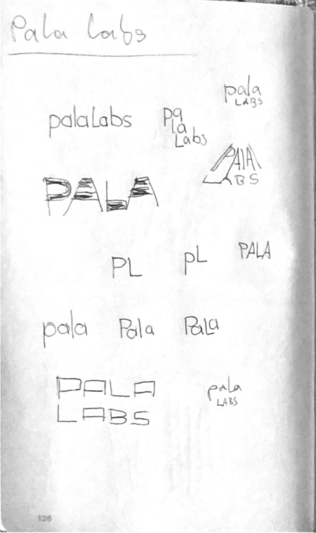 Pala Labs
pala
LABS
palaLabs
pa
la
Labs
PALA
LABS
PALA
PL
pL
PALA
pala
Pala
PaLa
PALA
LABS
pala
LABS
136